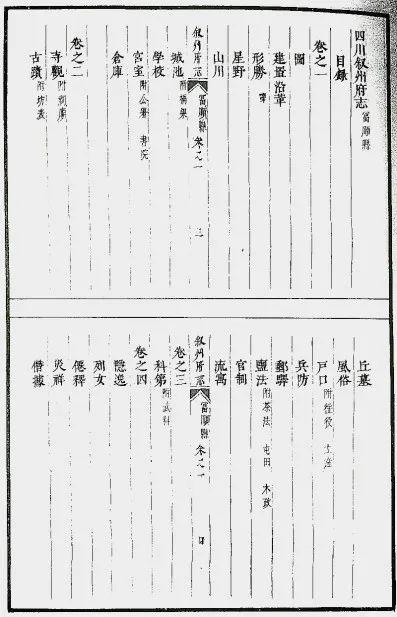 四川叙州府志 富順縣
目錄
卷之一
圖
建置沿革
形勝
星野
山川
叙州府志 富順縣 卷之一 三
城池 附橋梁
學校
宮室 附公署 書院
倉庫
卷之二
寺觀 附祠廟
古蹟 附坊表
丘墓
風俗
戶口 附徭役 土産
兵防
郵驛
鹽法 附茶法 屯田 木政
官制
流寓
叙州府志 富順縣 卷之一 四
卷之三
科第 附武科
卷之四
隱逸
列女
仙釋
災祥
僭據